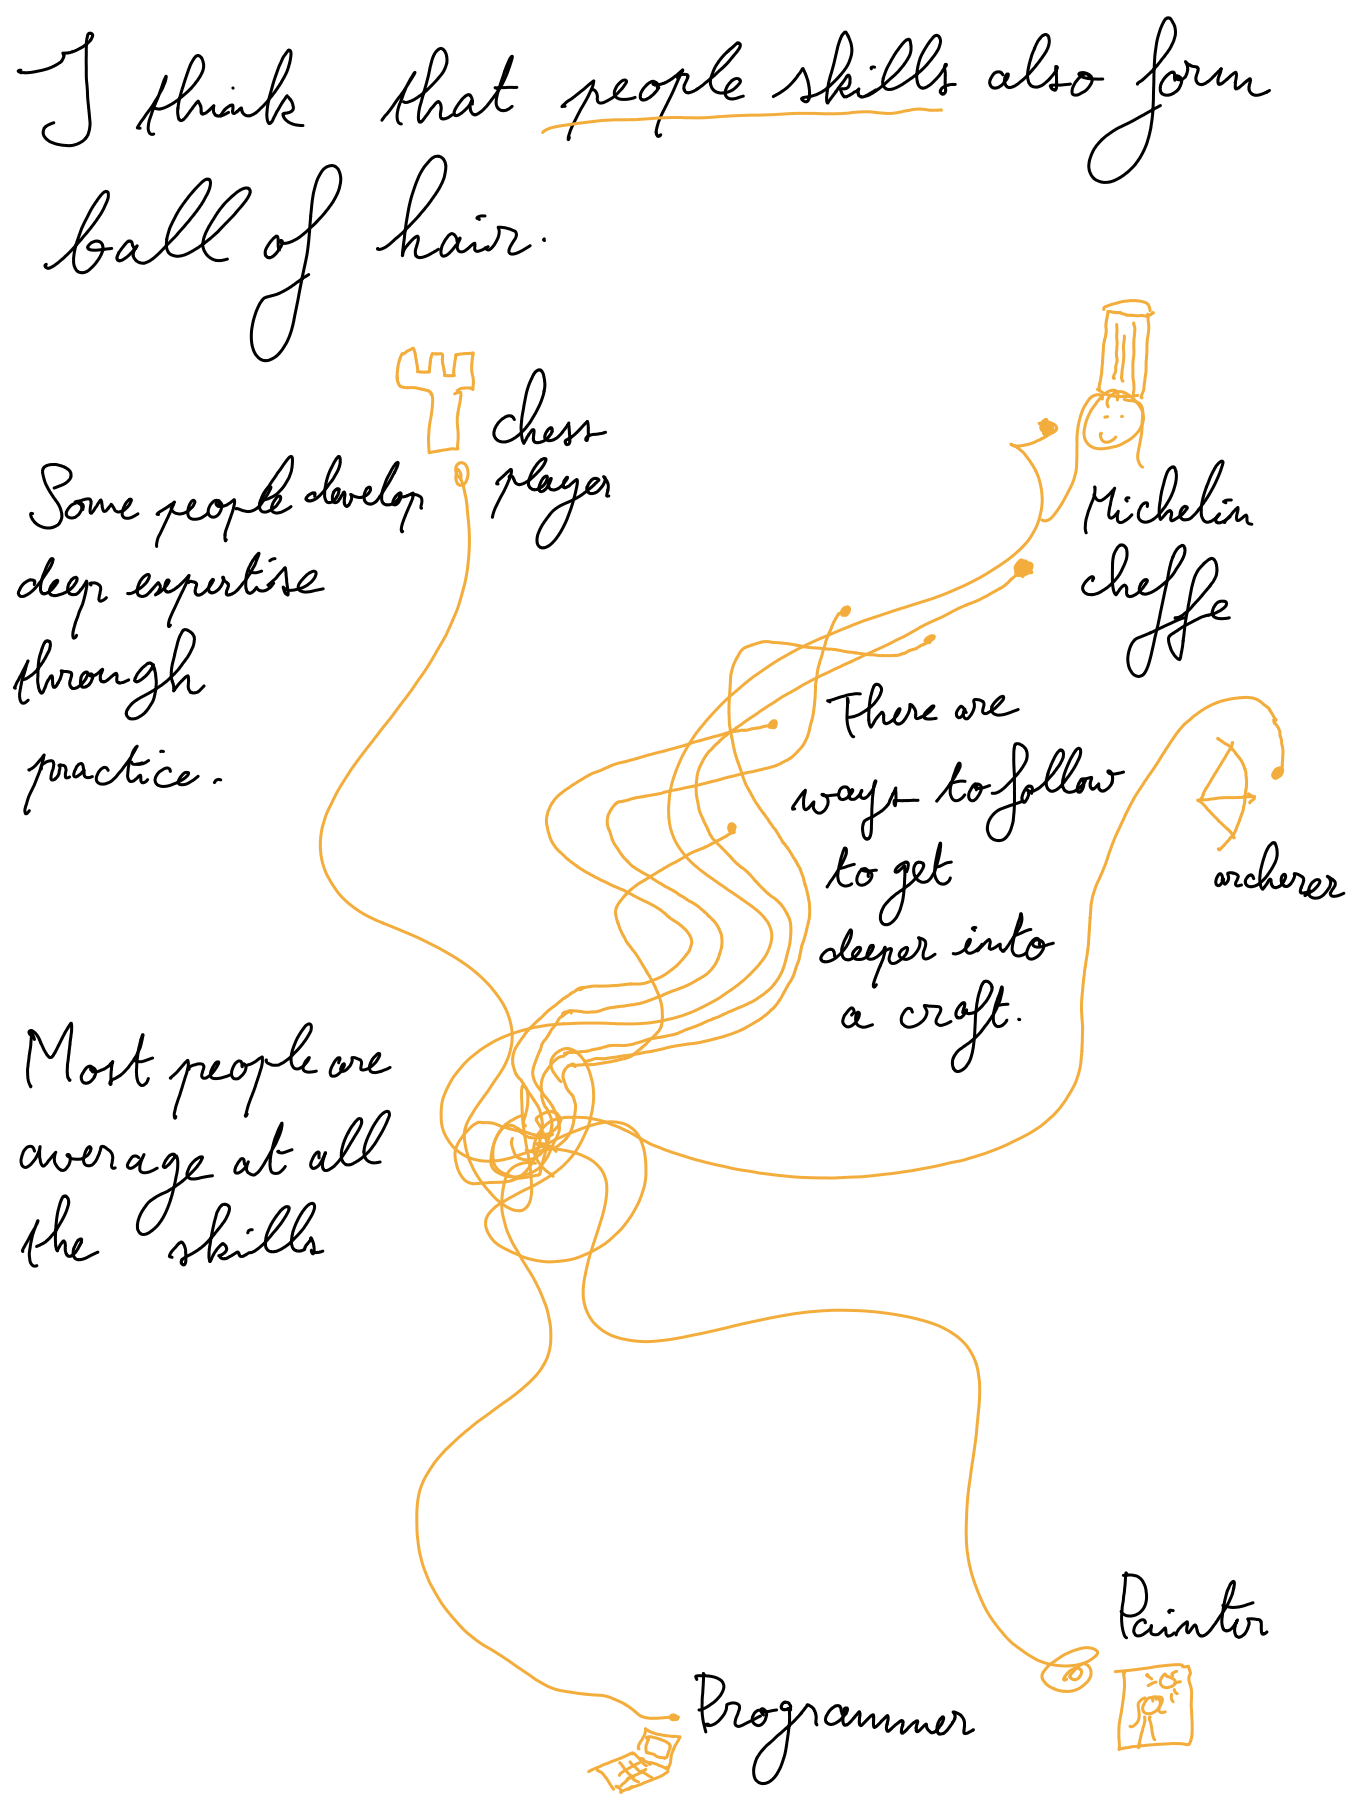 I think that people skills also form
ball of hair.
chess
player
Some people develop
deep expertise
through
practice.
Michelin
cheffe
There are
ways to follow
to get
deeper into
a craft.
archerer
Most people are
average at all
the skills
Painter
Programmer